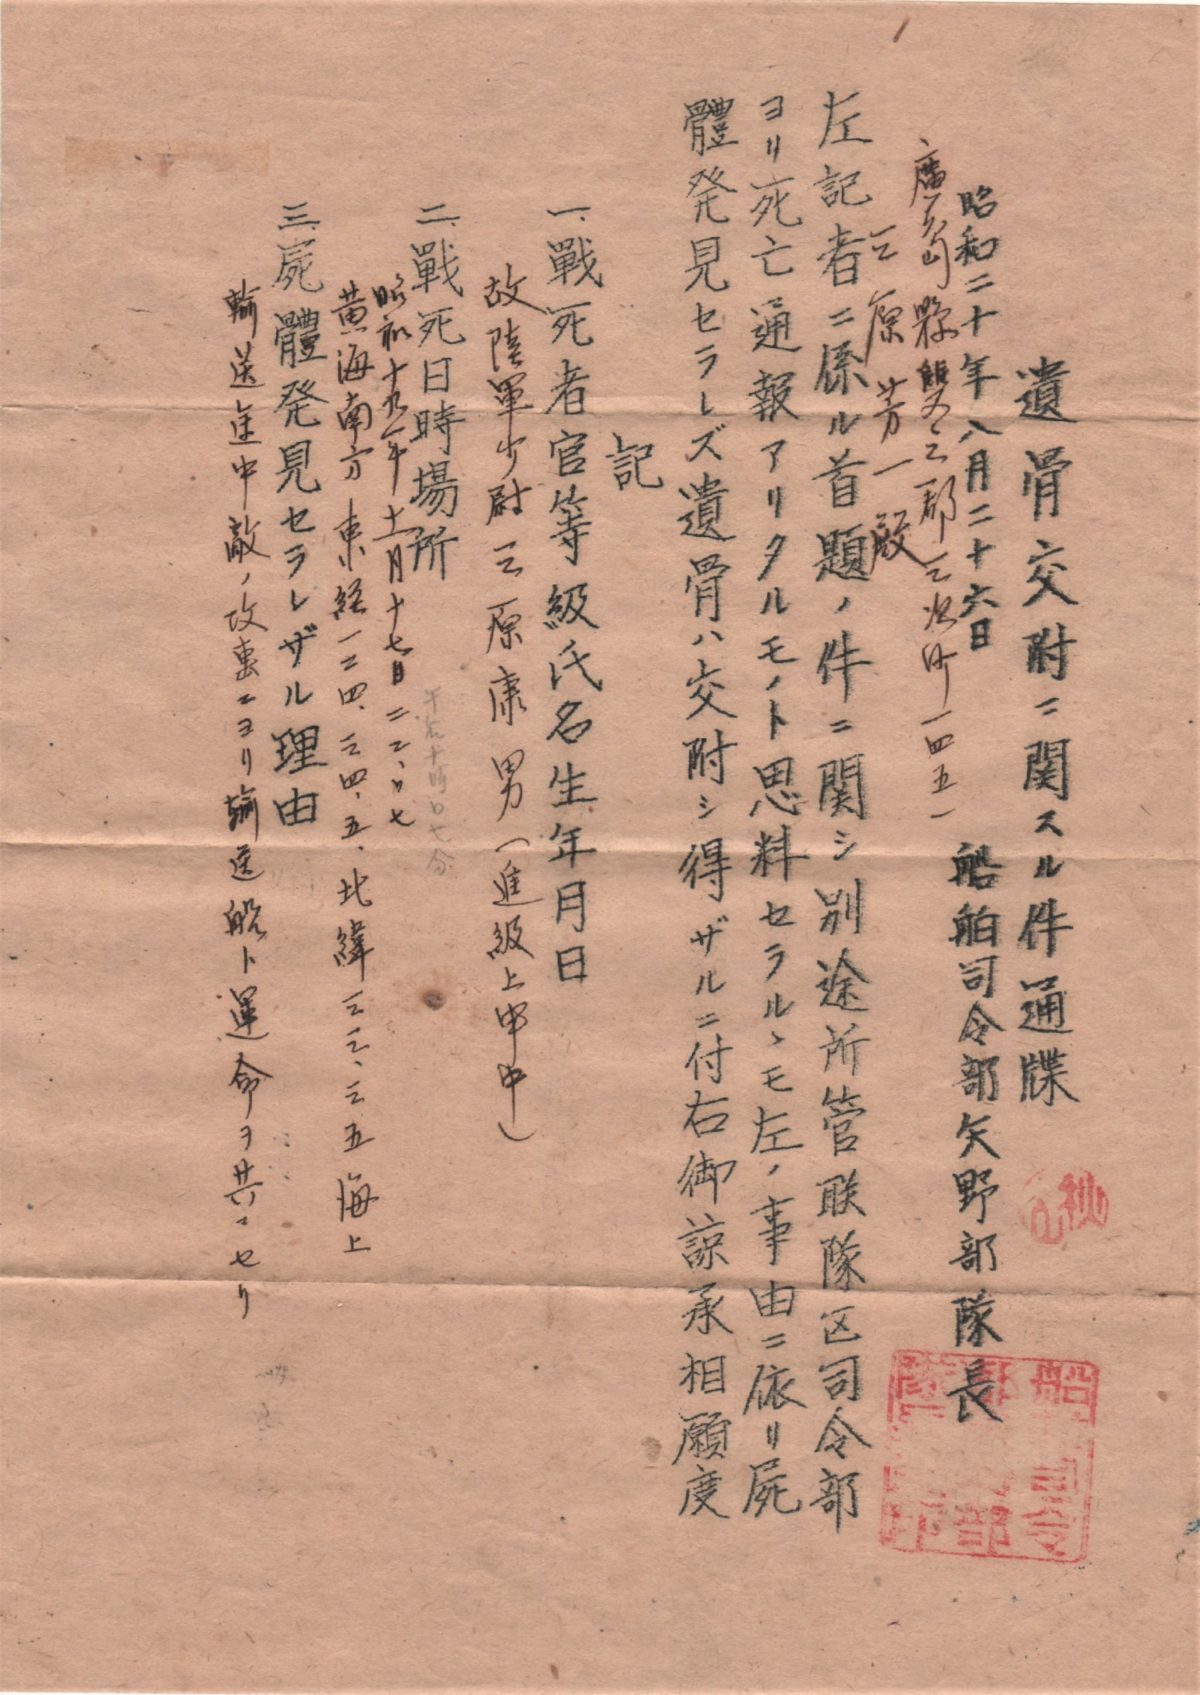 遺骨交附ニ関スル件通牒
昭和二十年八月二十六日
船舶司令部矢野部隊長
廣島縣雙三郡三次町一四五一
三原芳一殿
左記者ニ係ル首題ノ件ニ関シ別途所管聯隊区司令部
ヨリ死亡通報アリタルモノト思料セラルヽモ左ノ事由ニ依リ屍
體発見セラレズ遺骨ハ交附シ得ザルニ付右御諒承相願度
記
一、戰死者官等級氏名生年月日
故陸軍少尉三原康男(進級上申中)
二、戰死日時場所
昭和十九年十一月十七日二二、〇七
午后十時〇七分
黄海南方東経一二四、三四、五、北緯三三、三五海上
三、屍體発見セラレザル理由
輸送途中敵ノ攻撃ニヨリ輸送船ト運命ヲ共ニセリ